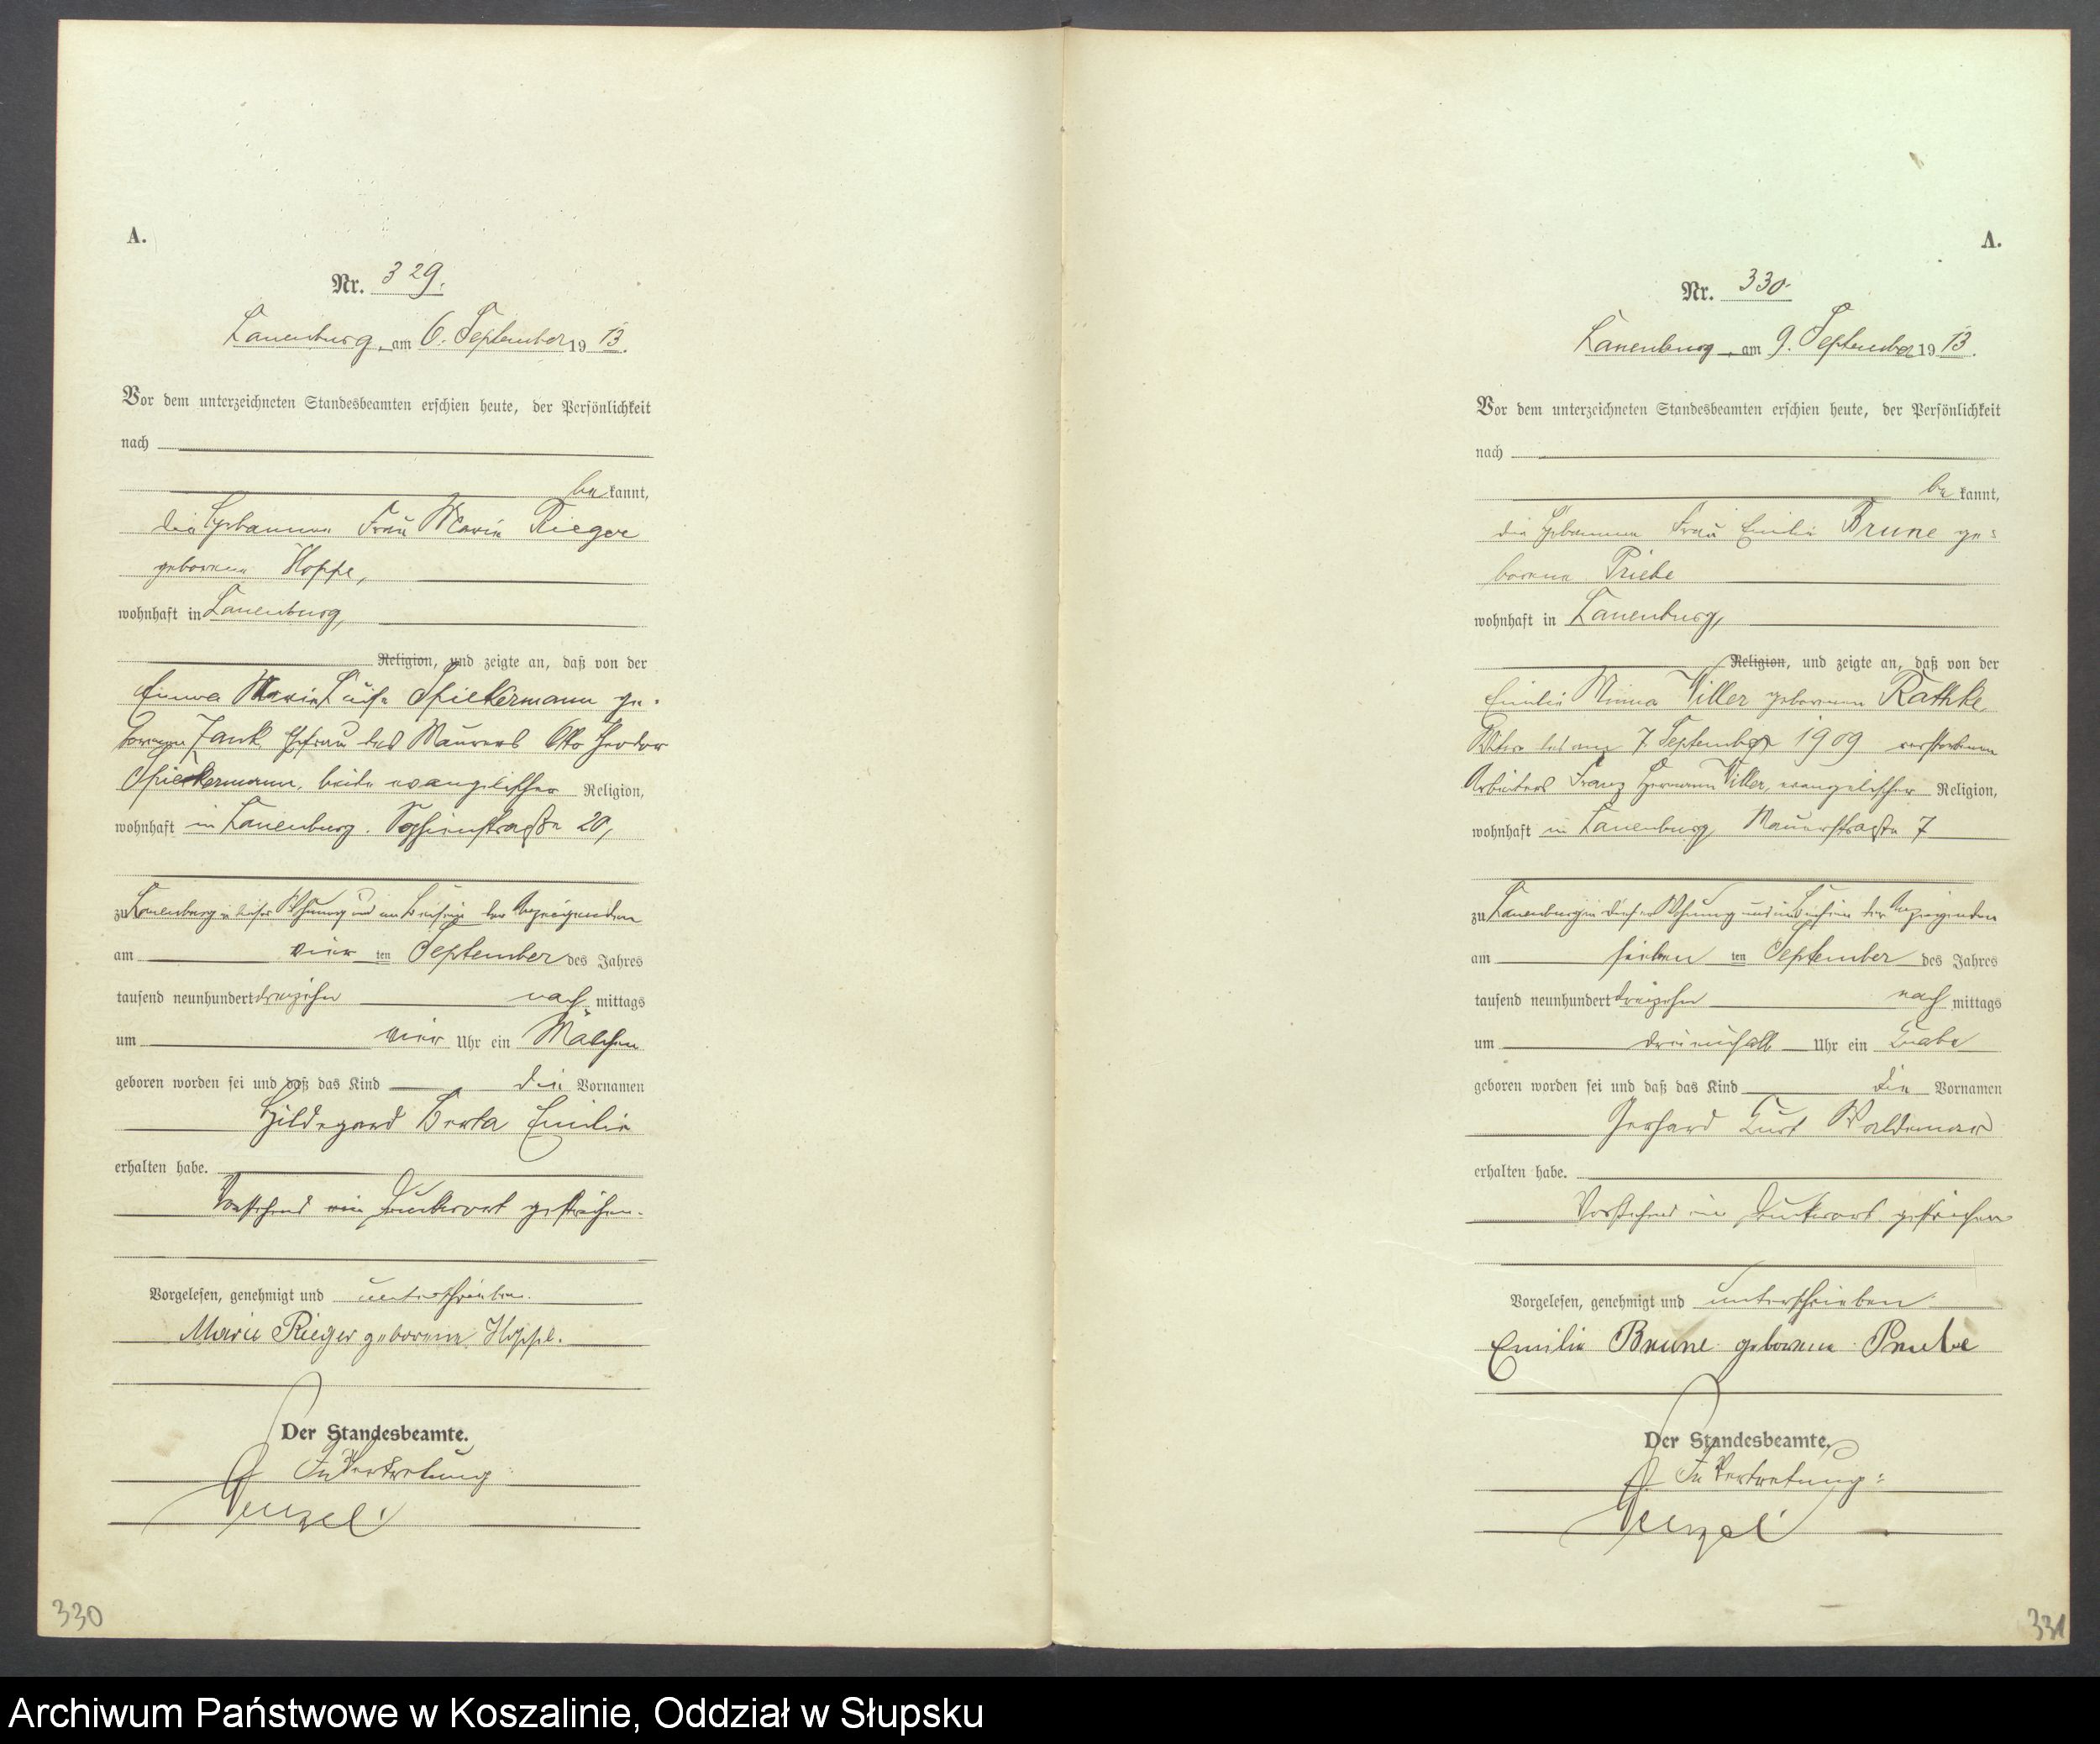 A.
Nr. 329.
Lauenburg, am 6. September 1913.
Vor dem unterzeichneten Standesbeamten erschien heute, der Persönlichkeit
nach
bekannt,
die Hebamme Frau Marie Rieger
geborene Hoppe,
wohnhaft in Lauenburg,
Religion, und zeigte an, daß von der
Emma Marie Luise Spiekermann ge-
borenen Jank Ehefrau des Maurers Otto Theodor
Spiekermann, beide evangelischer Religion,
wohnhaft in Lauenburg. Sophienstraße 20,
zu Lauenburg in dieser Wohnung und im Beisein der Anzeigenden
am vierten September des Jahres
tausend neunhundert dreizehn nachmittags
um vier Uhr ein Mädchen
geboren worden sei und daß das Kind die Vornamen
Hildegard Berta Emilie
erhalten habe.
Vorstehend ein Druckwort gestrichen.
Vorgelesen, genehmigt und unterschrieben.
Marie Rieger geborene Hoppe.
Der Standesbeamte.
In Vertretung:
330
A.
Nr. 330.
Lauenburg, am 9. September 1913.
Vor dem unterzeichneten Standesbeamten erschien heute, der Persönlichkeit
nach
bekannt,
die Hebamme Frau Emilie Brune ge-
borene Priebe
wohnhaft in Lauenburg,
Religion, und zeigte an, daß von der
Emilie Minna Viller geborenen Rathke
Witwe des am 7. September 1909 verstorbenen
Arbeiters Franz Hermann Viller, evangelischer Religion,
wohnhaft in Lauenburg, Mauerstraße 7
zu Lauenburg in dieser Wohnung und im Beisein der Anzeigenden
am siebenten September des Jahres
tausend neunhundert dreizehn nachmittags
um dreieinhalb Uhr ein Knabe
geboren worden sei und daß das Kind die Vornamen
Gerhard Kurt Waldemar
erhalten habe.
Vorstehend ein Druckwort gestrichen
Vorgelesen, genehmigt und unterschrieben
Emilie Brune geborene Priebe
Der Standesbeamte.
In Vertretung:
331
Archiwum Państwowe w Koszalinie, Oddział w Słupsku